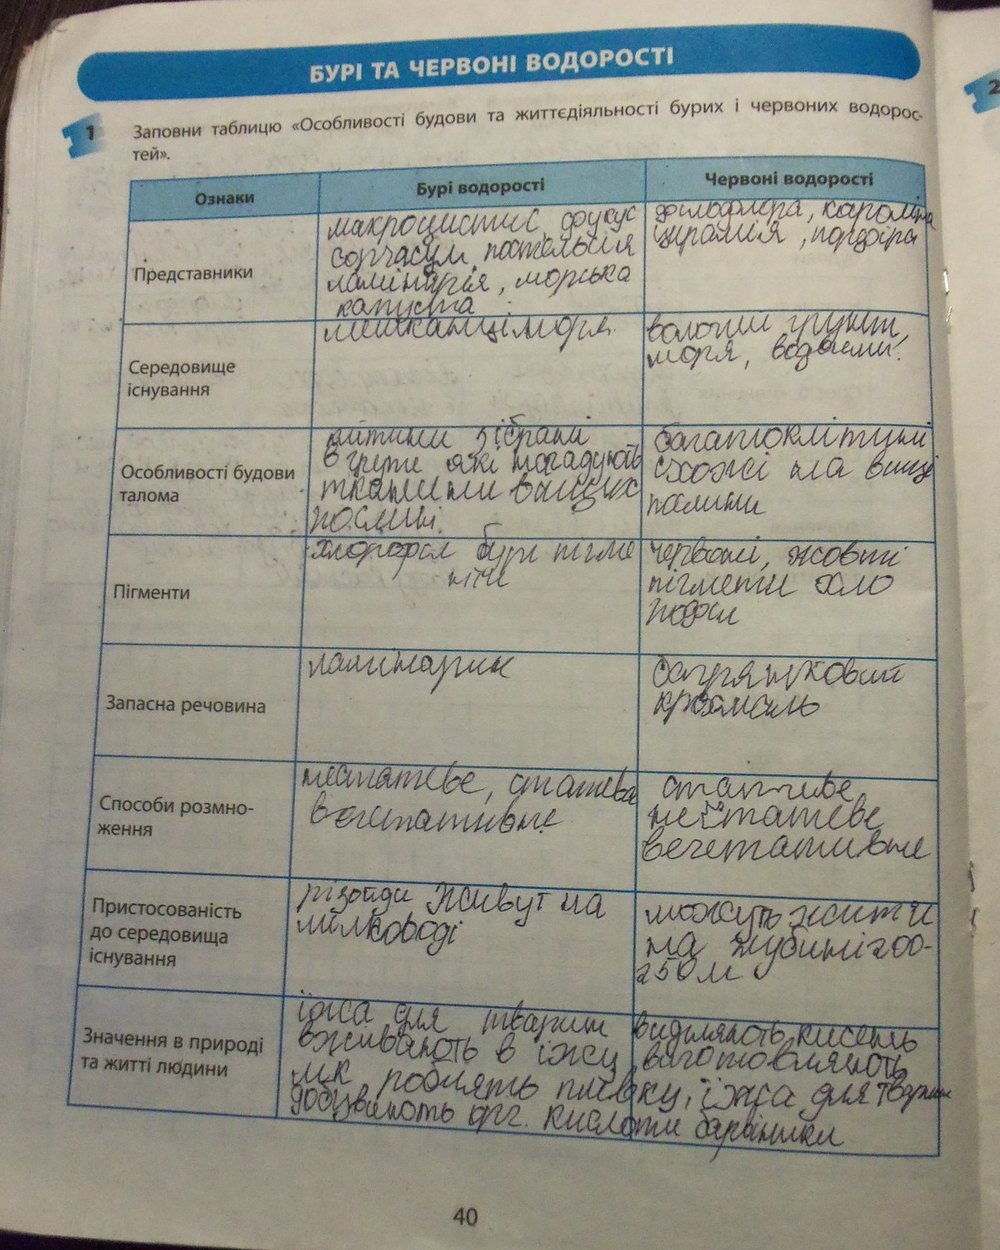 БУРІ ТА ЧЕРВОНІ ВОДОРОСТІ
2
1 Заповни таблицю «Особливості будови та життєдіяльності бурих і червоних водорос-
тей».
Ознаки Бурі водорості Червоні водорості
Представники
макроцистис, фукус
ламінарія, морська
капуста
філофлора,
Середовище
існування
мешканці моря
вологий грунт,
моря, водойми.
Особливості будови
талома
клітини зібрані
в групи які нагадують
тканини вищих
рослині.
багатоклітинні
схожі на вищі
Пігменти
хлорофіл бурі пігме
нти
червоні, жовті
пігмети хло
Запасна речовина
ламінарин
багрянковий
крохмаль
Способи розмно-
ження
нестатеве, статеве
вегетативне
статеве
нестатеве
вегетативне
Пристосованість
до середовища
існування
різоїди живут на
мілководі
можуть жити
на глубині 200-
250м
Значення в природі
та житті людини
їжа для тварин
вживають в їжу
добувають орг. кислоти
виділяють кисень
виготовляють
їжа для тварин
барвники
40